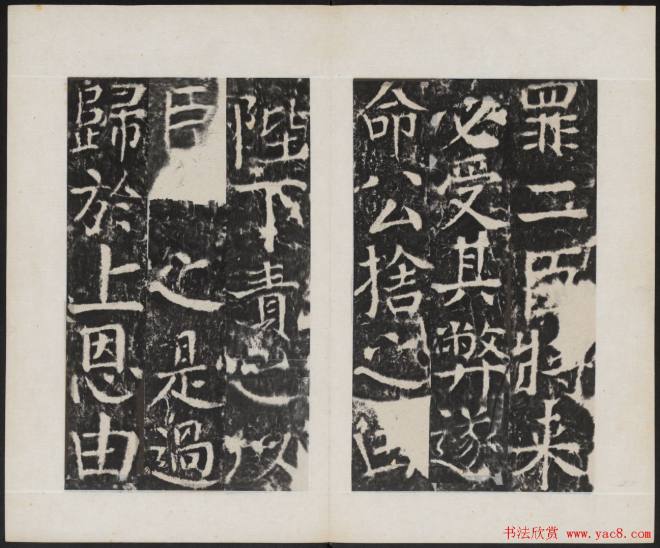 罪二臣将来
必受其弊遂
命公捨之臣
陛下責之以
臣之是過
歸於上恩由
书法欣赏 www.yac8.com